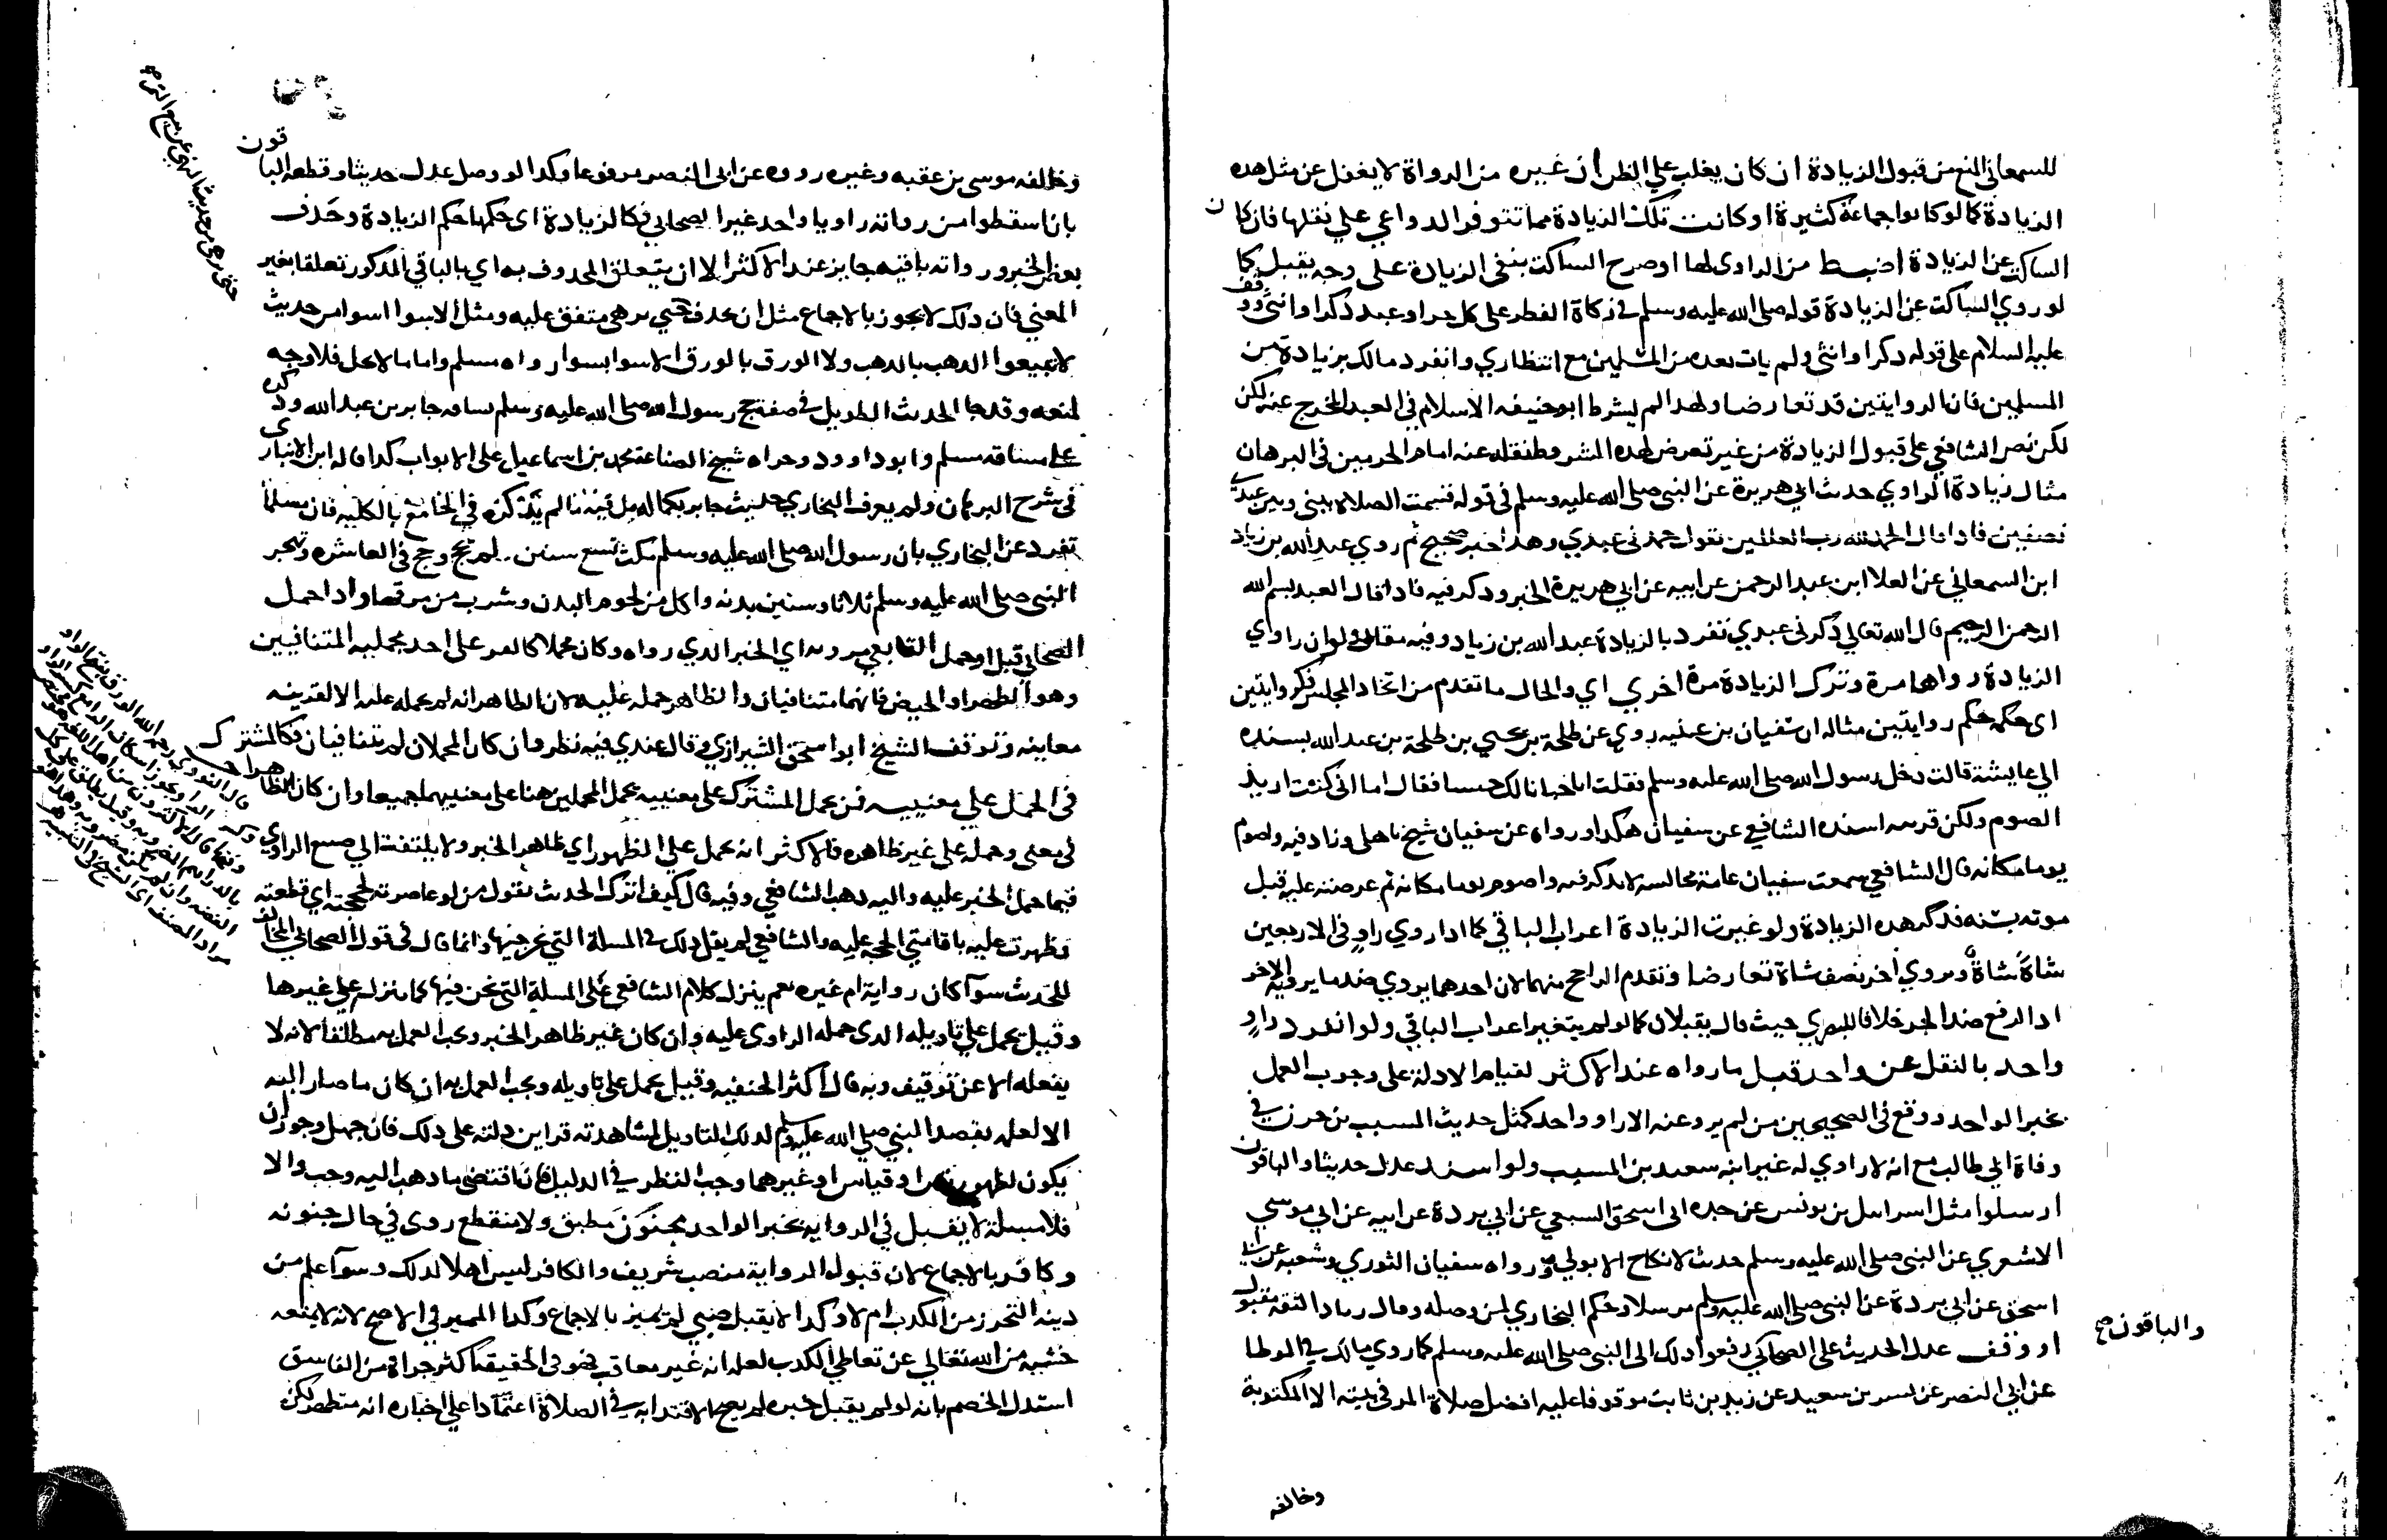 للسمعاني المنع من قبول الزيادة ان كان يغلب علي الظن ان غيره من الرواة لا يغفل عن مثل هده
الزيادة كما لو كانوا جماعة كثيرة او كانت تلك الزيادة مما تتوفر الدواعي علي نقلها فان كان
الساكت عن الزيادة اضبط من الراوي لها او صرح الساكت بنفي الزيادة على وجه يقبل كما
لو روي الساكت عن الزيادة قوله صلى الله عليه وسلم في زكاة الفطر على كل حر او عبد دكر او انثي ووقف
عليه السلام على قوله دكر او انثى ولم يات بعده من المسلمين مع انتظاري وانفرد مالك بزيادة من
المسلمين فان الروايتين قد تعارضا ولهدا لم يشرط ابو حنيفه الاسلام في العبد المخرج عنه لكن
لكن نص الشافعي على قبول الزيادة من غير تعرض لهده الشروط نقله عنه امام الحرمين في البرهان
مثال زيادة الراوي حدث ابي هريرة عن النبي صلى الله عليه وسلم في قوله قسمت الصلاة بيني وبين عبدي
نصفين فادا قال الحمد لله رب العالمين نقول حمدني عبدي وهدا خبر صحيح ثم روي عبد الله بن زياد
ابن السمعاني عن العلا ابن عبد الرحمن عن ابيه عن ابي هريرة الخبر ودكر فيه فادا قال العبد بسم الله
الرحمن الرحيم قال الله تعالي دكرني عبدي تفرد بالزيادة عبد الله بن زياد وفيه مقال ولو ان راوي
الزيادة رواها مرة وترك الزيادة مرة اخري اي والحال ما تقدم من اتحاد المجلس فكروايتين
اي حكمه حكم روايتين مثاله ان سفيان بن عينيه روي عن طلحة بن يحيي بن طلحة بن عبد الله بسنده
الي عايشة قالت دخل رسول الله صلى الله عليه وسلم فقلت انا خبانا لك حيسا فقال اما اني كنت اريد
الصوم ولكن قربيه اسنده الشافعي عن سفيان هكدا ورواه عن سفيان شيخ باهلي وزاد فيه واصوم
يوما مكانه قال الشافعي سمعت سفيان عامة مجالسه لا يدكر فيه واصوم يوما مكانه ثم عرضته عليه قبل
موته بسنه فدكر هده الزيادة ولو غيرت الزيادة اعراب الباقي كما ادا روي راو في الاربعين
شاة شاة ويروي اخر نصف شاة تعارضا ونقدم الراجح منهما لان احدهما يروي ضد ما يرويه الاخر
اد الرفع ضد الجر خلافا للبصري حيث قال يقبلان كما لو لم يتغير اعراب الباقي ولو انفرد راو
واحد بالنقل عن واحد قبل ما رواه عند الاكثر لقيام الادلة على وجوب العمل
بخبر الواحد ووقع في الصحيحين من لم يرو عنه الا راو واحد كمثل حديث المسيب بن حزن في
وفاة ابي طالب مع انه لا راوي له غير ابنه سعيد بن المسيب ولو اسند عدل حديثا والباقون
ارسلوا مثل اسرايل بن يونس عن جده ابي اسحق السبيعي عن ابي بردة عن ابيه عن ابي موسي
الاشعري عن النبي صلى الله عليه وسلم حديث لا نكاح الا بولي ورواه سفيان الثوري وشعبه عن ابي
اسحق عن ابي بردة عن النبي صلى الله عليه وسلم مرسلا وحكم البخاري لمن وصله وقال زيادة الثقه مقبوله
او وقف عدل الحديث على الصحابي ورفعوا دلك الى النبي صلى الله عليه وسلم كما روي مالك في الموطا
والباقون صح
عن ابي النضر عن بسر بن سعيد عن زيد بن ثابت موقوفا عليه افضل صلاة المر في بيته الا المكتوبة
وخالفه
وخالفه موسى بن عقبه وغيره رووه عن ابي النضر مرفوعا وكدا لو وصل عدل حديثا وقطعه الباقون
بان اسقطوا من رواته راويا واحد غير الصحابي فكالزيادة اي حكمها حكم الزيادة وحدف
بعض الخبر ورواته باقيه جايز عند الاكثر الا ان يتعلق المحدوف به اي بالباقي المدكور تعلقا بغير
المعني فان دلك لا يجوز بالاجماع مثل ان يحدف حتي يزهي متفق عليه ومثل الا سوا اسوا من حديث
لا تبيعوا الدهب بالدهب ولا الورق بالورق الا سوا بسوا رواه مسلم واما ما لا يحل فلا وجه
لمنعه وقد جا الحديث الطويل في صفة حج رسول الله صلى الله عليه وسلم ساقه جابر بن عبد الله ودكره
على سياقه مسلم وابو داوود وجزاه شيخ الصناعة محمد بن اسماعيل على الابواب كدا قاله ابن الانباري
في شرح البرهان ولم يعرف البخاري حديث جابر بكماله بل فيه ما لم يدكره في الجامع بالكليه فان مسلما
تفرد عن البخاري بان رسول الله صلى الله عليه وسلم مكث تسع سنين لم يحج وحج في العاشره ونحر
النبي صلى الله عليه وسلم ثلاثا وستين بدنه واكل من لحوم البدن وشرب من مرقها وادا حمل
الصحابي قيل او حمل التابعي مرويه اي الخبر الدي رواه وكان محملا كالقرء على احد محمليه المتنافيين
وهو الطهر او الحيض فانهما متنافيان والظاهر حمله عليه لان الظاهر انه لم يحمله عليه الا لقرينه
معاينه وتوقف الشيخ ابو اسحق الشيرازي وقال عندي فيه نظر وان كان المحملان لم يتنافيان فكالمشترك
في الحمل علي معنييه فمن يحمل المشترك على معنييه يحمل المحملين هنا على معنييهما جميعا وان كان الظاهرا
في معنى وحمله على غير ظاهره فالاكثر انه يحمل على الظهور اي ظاهر الخبر ولا يلتفت الي صنيع الراوي
فيما حمل الخبر عليه واليه دهب الشافعي وفيه قال كيف اترك الحديث بقول من لو عاصرته لحججته اي قطعته
وظهرت عليه باقامتي الحجه عليه والشافعي لم يقل دلك في المسلة التي نحن فيها وانما قال في قول الصحابي المخالف
للحديث سوا كان رواية ام غيره نعم ينزل كلام الشافعي على المسلة التي نحن فيها كما ينزل علي غيرها
وقيل يحمل علي تاويله الدي حمله الراوي عليه وان كان غير ظاهر الخبر ويجب العمل به مطلقا لانه لا
يفعله الا عن توقيف وبه قال اكثر الحنفيه وقيل يحمل على تاويله ويجب العمل به ان كان ما صار اليه
الا لعلمه بقصد النبي صلى الله عليه وسلم لدلك التاويل لمشاهدته قراين دلته على دلك فان جهل وجوز ان
يكون لظهور نص او قياس او غيرهما وجب النظر في الدليل فان اقتضى ما دهب اليه وجب والا
فلا مسلة لا يقبل في الروايه بخبر الواحد مجنون مطبق ولا منقطع روى في حال جنونه
وكافر بالاجماع لان قبول الرواية منصب شريف والكافر ليس اهلا لدلك وسوا علم من
دينه التحرز من الكدب ام لا وكدا لا يقبل صبي لم يميز بالاجماع وكدا المميز في الاصح لانه لا يمنعه
خشية من الله تعالي عن تعاطي الكدب لعلمه انه غير معاقب فهو في الحقيقه اكثر جراة من الفاسق
استدل الخصم بانه لو لم يقبل خبره لم يصح الاقتدا به في الصلاة اعتمادا على اخباره انه متطهر لكن